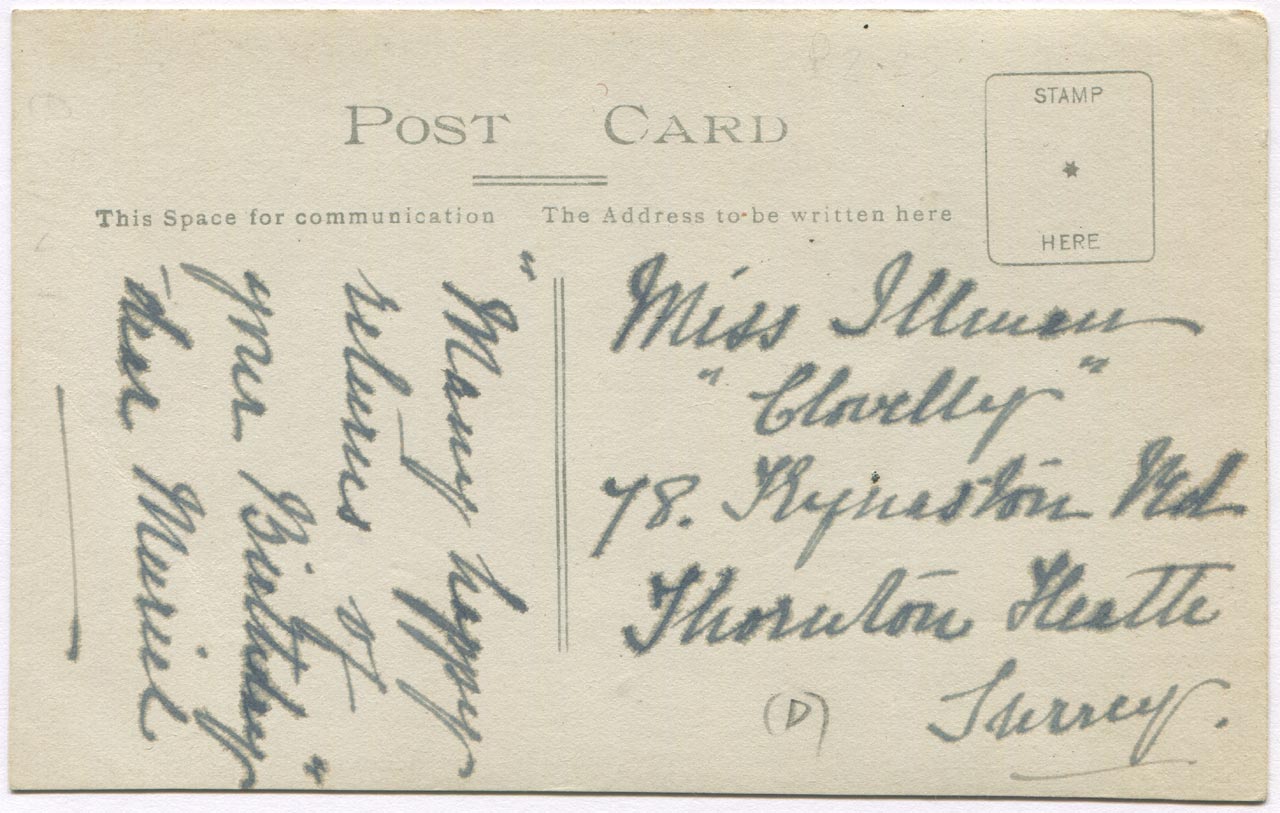 POST CARD
STAMP
HERE
This Space for communication
The Address to be written here
"Many happy
returns of
your Birthday"
dear Muriel
Miss Illman
"Clovelly"
78. Kynaston Rd
Thornton Heath
Surrey.
(D)